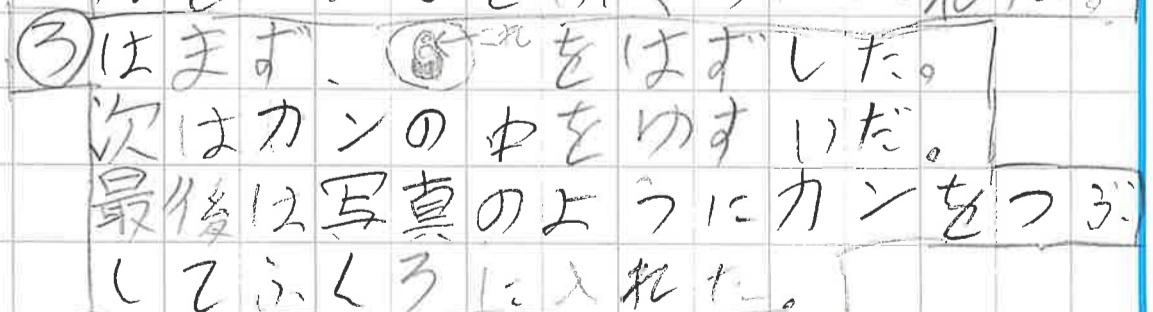 ③はまず、←これをはずした。
次はカンの中をゆすいだ。
最後は写真のようにカンをつぶ
してふくろに入れた。